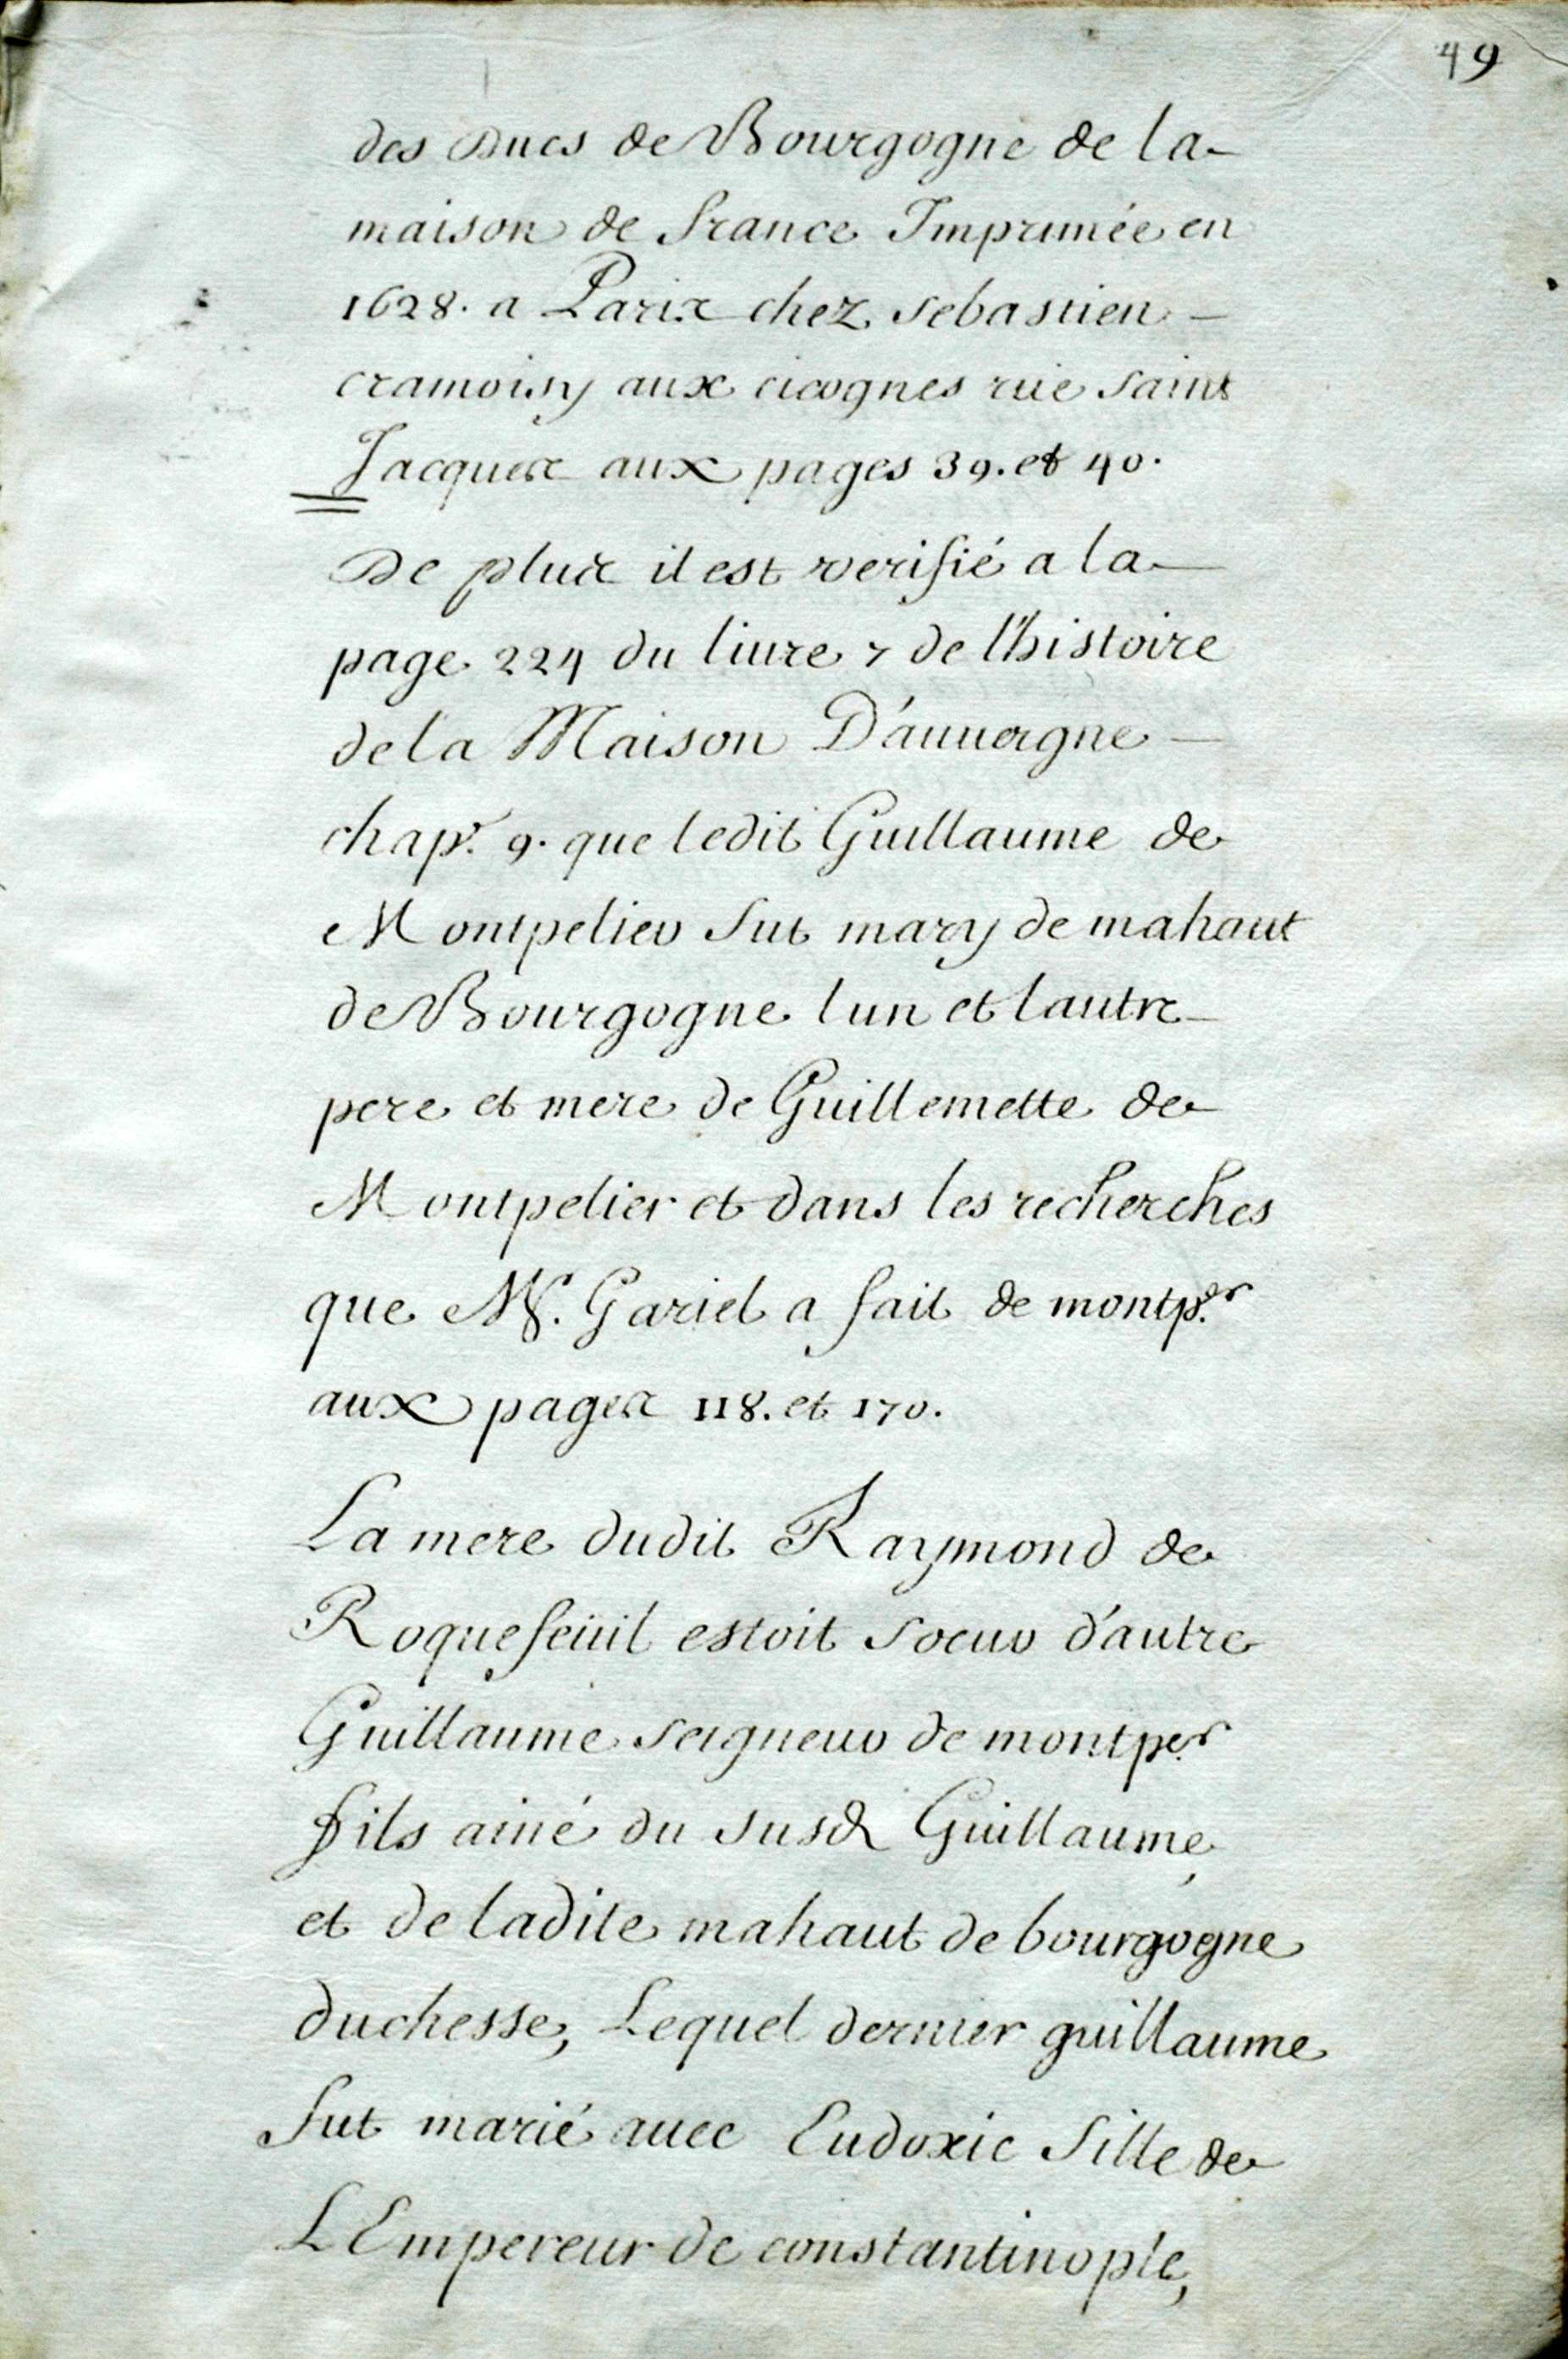 49
des Ducs de Bourgogne de la
maison de france Imprimée en
1628. a Paris chez sebastien
cramoisy aux cicognes rue saint
Jacques aux pages 39. et 40.
De plus il est verifié a la
page 224 du liure 7 de l'histoire
de la Maison D'auuergne
chapr. 9. que ledit Guillaume de
Montpelier fut mary de mahaut
de Bourgogne lun et lautre
pere et mere de Guillemette de
Montpelier et dans les recherches
que Mr. Gariel a fait de montper
aux pages 118. et 170.
La mere dudit Raymond de
Roquefeuil estoit soeur d'autre
Guillaume seigneur de montper
fils ainé du susd Guillaume,
et de ladite mahaut de bourgogne
duchesse, Lequel dernier guillaume
fut marié auec Eudoxie fille de
LEmpereur de constantinople,